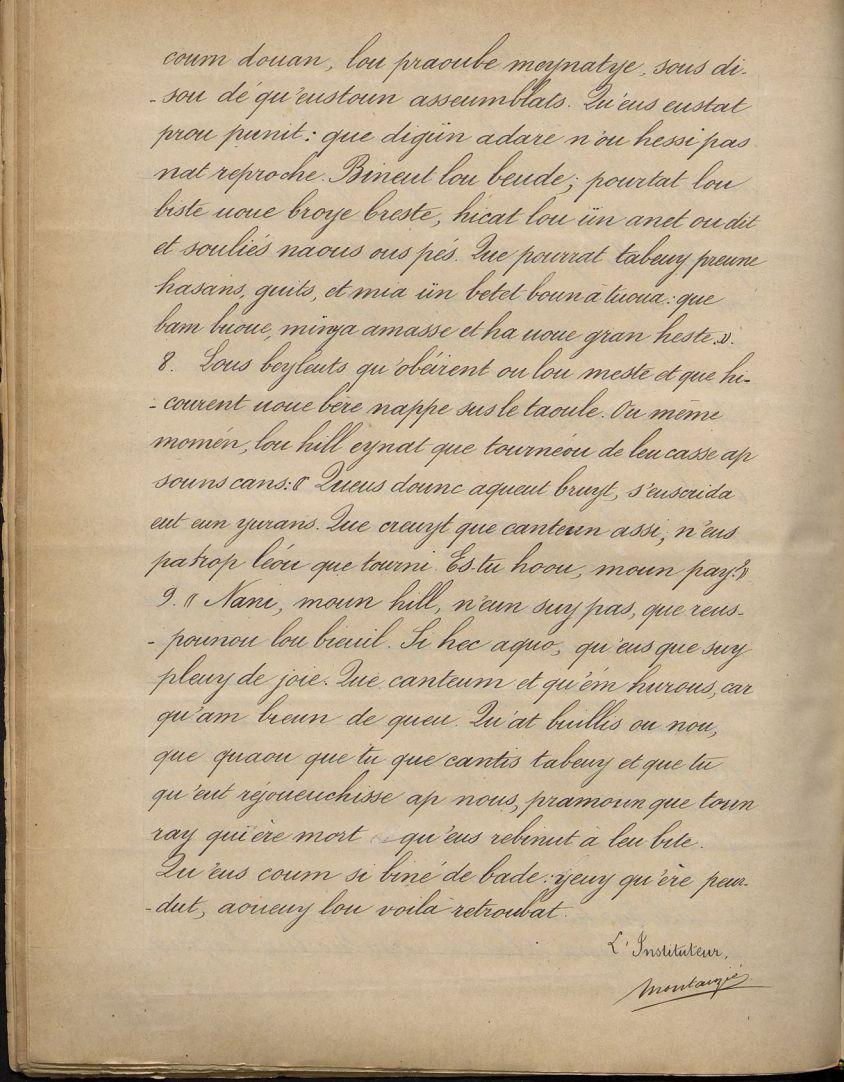 coum douan, lou praoube meynatye, sous di-
- sou dé qu'eustoun asseumblats. Qu'eus eustat
prou punit : que digün adare n'ou hessi pas
nat reproche. Bineut lou beude ; pourtat lou
biste uoue broye breste, hicat lou ün anet ou dit
et souliés naous ous pés. Que pourrat tabeuy preune
hasans, guits, et mia ün betet boun à tuoua : que
bam buoue, minja amasse et ha uoue gran heste. ».
8. Lous beyleuts qu'obéirent ou lou meste et que hi-
- courent uoue bère nappe sus le taoule. Ou même
momén, lou hill eynat que tournéou de leu casse ap
souns cans : « Queus dounc aqueut bruyt, s'euscrida
eut eun yurans. Que creuyt que canteun assi ; n'eus
pa trop léou que tourni. Es-tu hoou, moun pay ? »
9. « Nani, moun hill, n'eun suy pas, que reus-
- pounou lou bieuil. Si hec aquo, qu'eus que suy
pleuy de joie. Que canteum et qu'ém hurous, car
qu'am bieun de queu. Qu'at buillis ou nou,
que quaou que tu que cantis tabeuy et que tu
qu'eut réjoueuchisse ap nous, pramoun que toun
ray qui ère mort qu'eus rebinut à leu bite.
Qu'eus coum si biné de bade : yeuy qu'ère peur-
- dut, aoueuy lou voilà retroubat.
L'Instituteur,